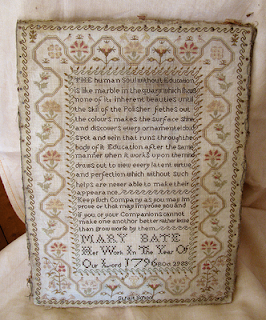 THE human Soul without Education
is like marble in the quarry which shews
none of its inherent beauties until
the Skil of the Polisher fetches out
the colours makes the surface shine
and discovers every ornamental cloud
spot and vein that runs through the
body of it Education after the same
manner when it works upon the mind
draws out to view every latent virtue
and perfection which without such
helps are never able to make their
appearance
Keep such Company as you may im
prove or that may improve you and
if you or your Companions cannot
make one another better rather leave
than grow worse by them
MARY BATE
Her Work In The Year Of
Our Lord 1796
School